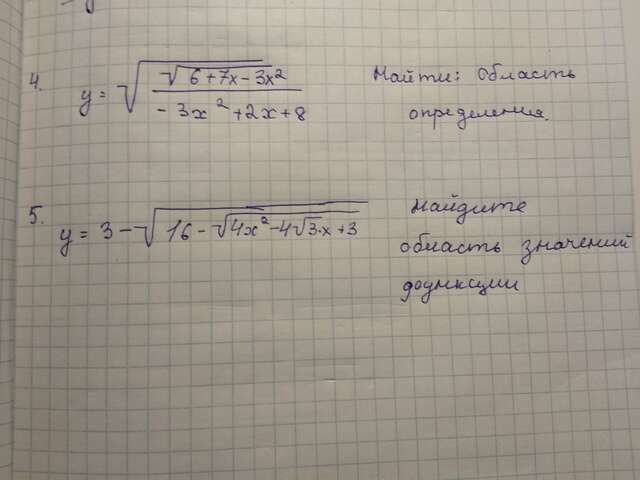 4. y = √(√(6+7x-3x²) / (-3x²+2x+8)) Найти: Область
определения.
5. y = 3 - √(16 - √(4x²-4√3·x+3)) Найдите
область значений
функции